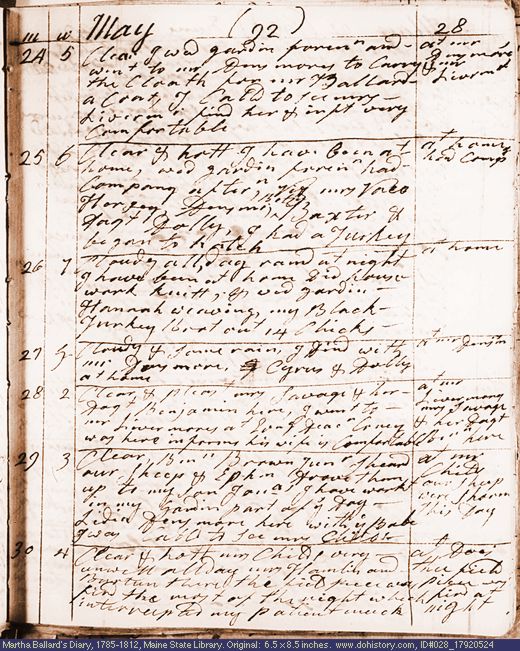 m w May (92) 28
24 5 Clear I wed gardin foren" and
went to mr Densmores to Carry
the Cloath for mr Ballard
a Coat, I Calld to see mrs
Livermore find her & inft very
Comfortable
at mr
Densmore
& mr
Livermores
25 6 Clear & hott I have been at
home, wed gardin foren" had
Company after,
mrs Baxter &
Dagt Dolly I had a Turkey
began to hatch
at home
had Comp
26 7 Cloudy all day raind at night
I have been at home Did house
work knitt, & wed gardin
Hannah weaving, my Black
Turkey Brot out 14 Chicks
at home
27 Cloudy & some rain, I Dind with
mr Densmore, Cyrus & Dolly
at home
at mr Densm
28 2 Clear & pleast mrs Savage & her
Dagt & Benjamin here, I went to
mr Livermores at
was here informs his wife is Comfortable
at mr
Livermores
mrs Savage
& her Dagt
& Ben" here
29 3 Clear, Ben" Brown Junr sheard
our sheep & Ephm Drove them
up to my son Jonas I have workt
in my gardin part of ye Day
Lidia Densmore here with ye Babe
I was Calld to see mrs Childs
at mr
Childs
our sheep
were shorn
this Day
30 4 Clear & hott mrs Childs very
unwell all day mrs Hamlin and
Burtun there the
fird the most of the night which
interrupted my patient much
at Does
the field
pieces were
fird at
night
Martha Ballard's Diary, 1785-1812, Maine State Library. Original: 6.5 x 8.5 inches. www.dohistory.com, ID#028_17920524